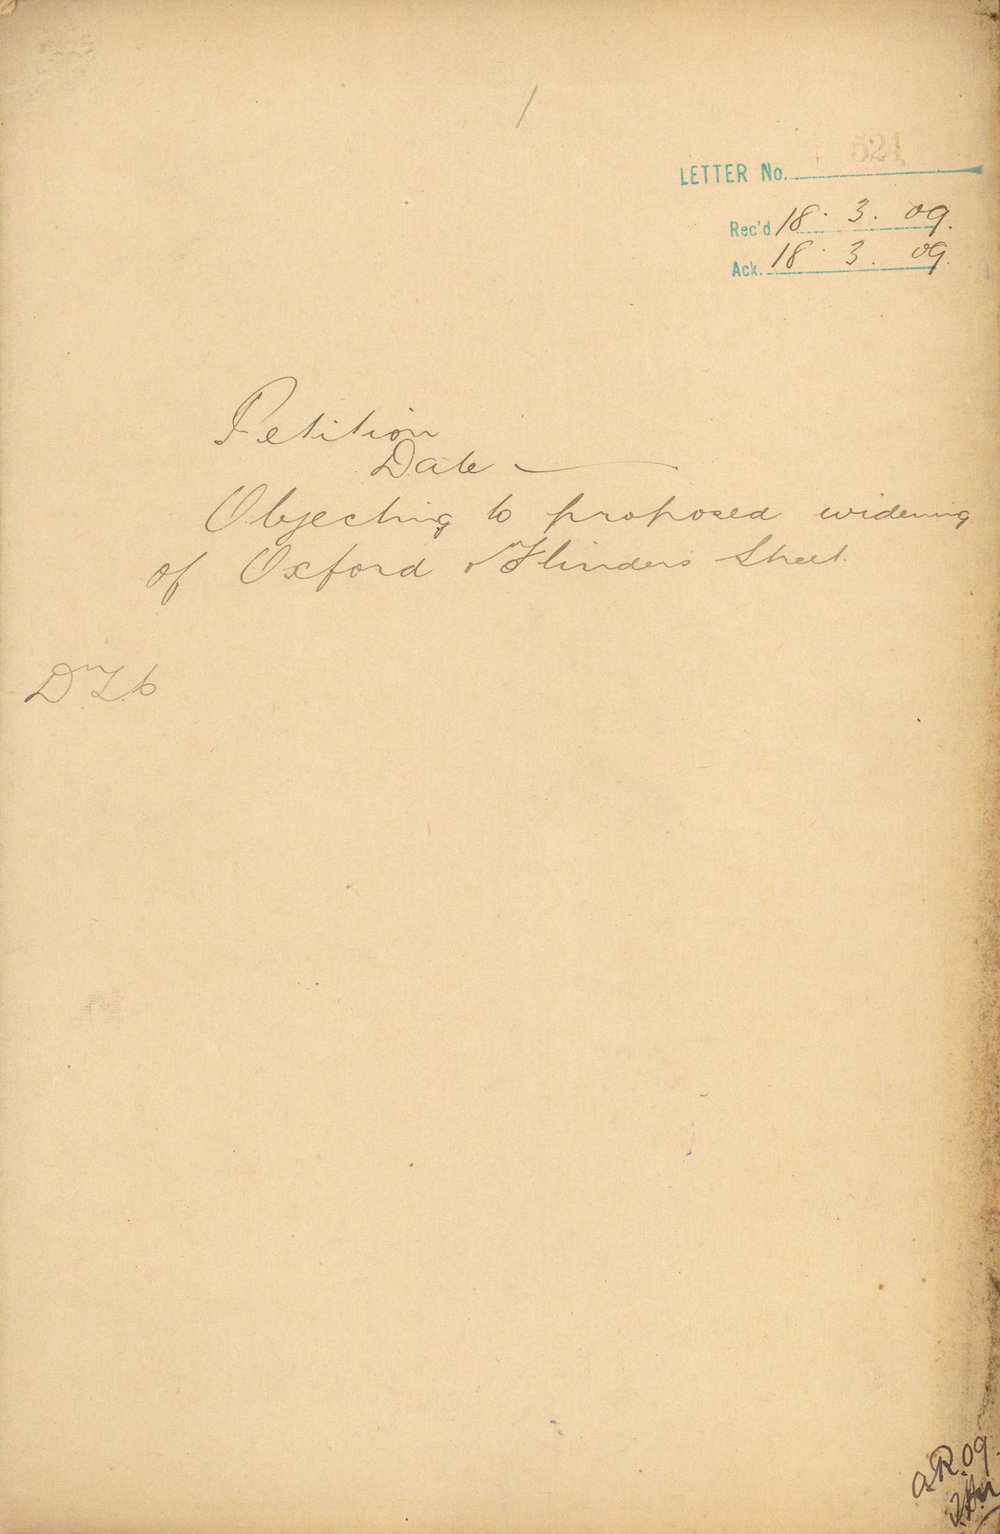 /
LETTER No. 521
Rec'd 18. 3. 09.
Ack. 18. 3. 09.
Petition
Date —
Objecting to proposed widening
of Oxford & Flinders Street.
a.R.09